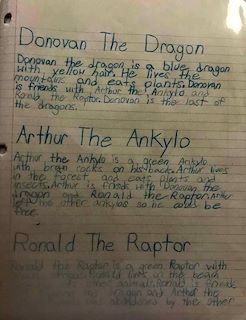 Donovan The Dragon
Donovan the dragon is a blue dragon
with yellow hair. He lives the
mountains and eats plants. Donovan
is friends with Arthur the Ankylo and
Ronald the Raptor. Donovan is the last of
the dragons.
Arthur The Ankylo
Arthur the Ankylo is a green Ankylo
with brown rocks on his back. Arthur lives
in the forest and eats plants and
insects. Arthur is friends with Donovan the
dragon and Ronald the Raptor. Arthur
left the other ankylos so he could be
free.
Ronald The Raptor
Ronald the Raptor is a green Raptor with
Ronald lives on the beach
Ronald is friends
Arthur the
and abandoned by the other